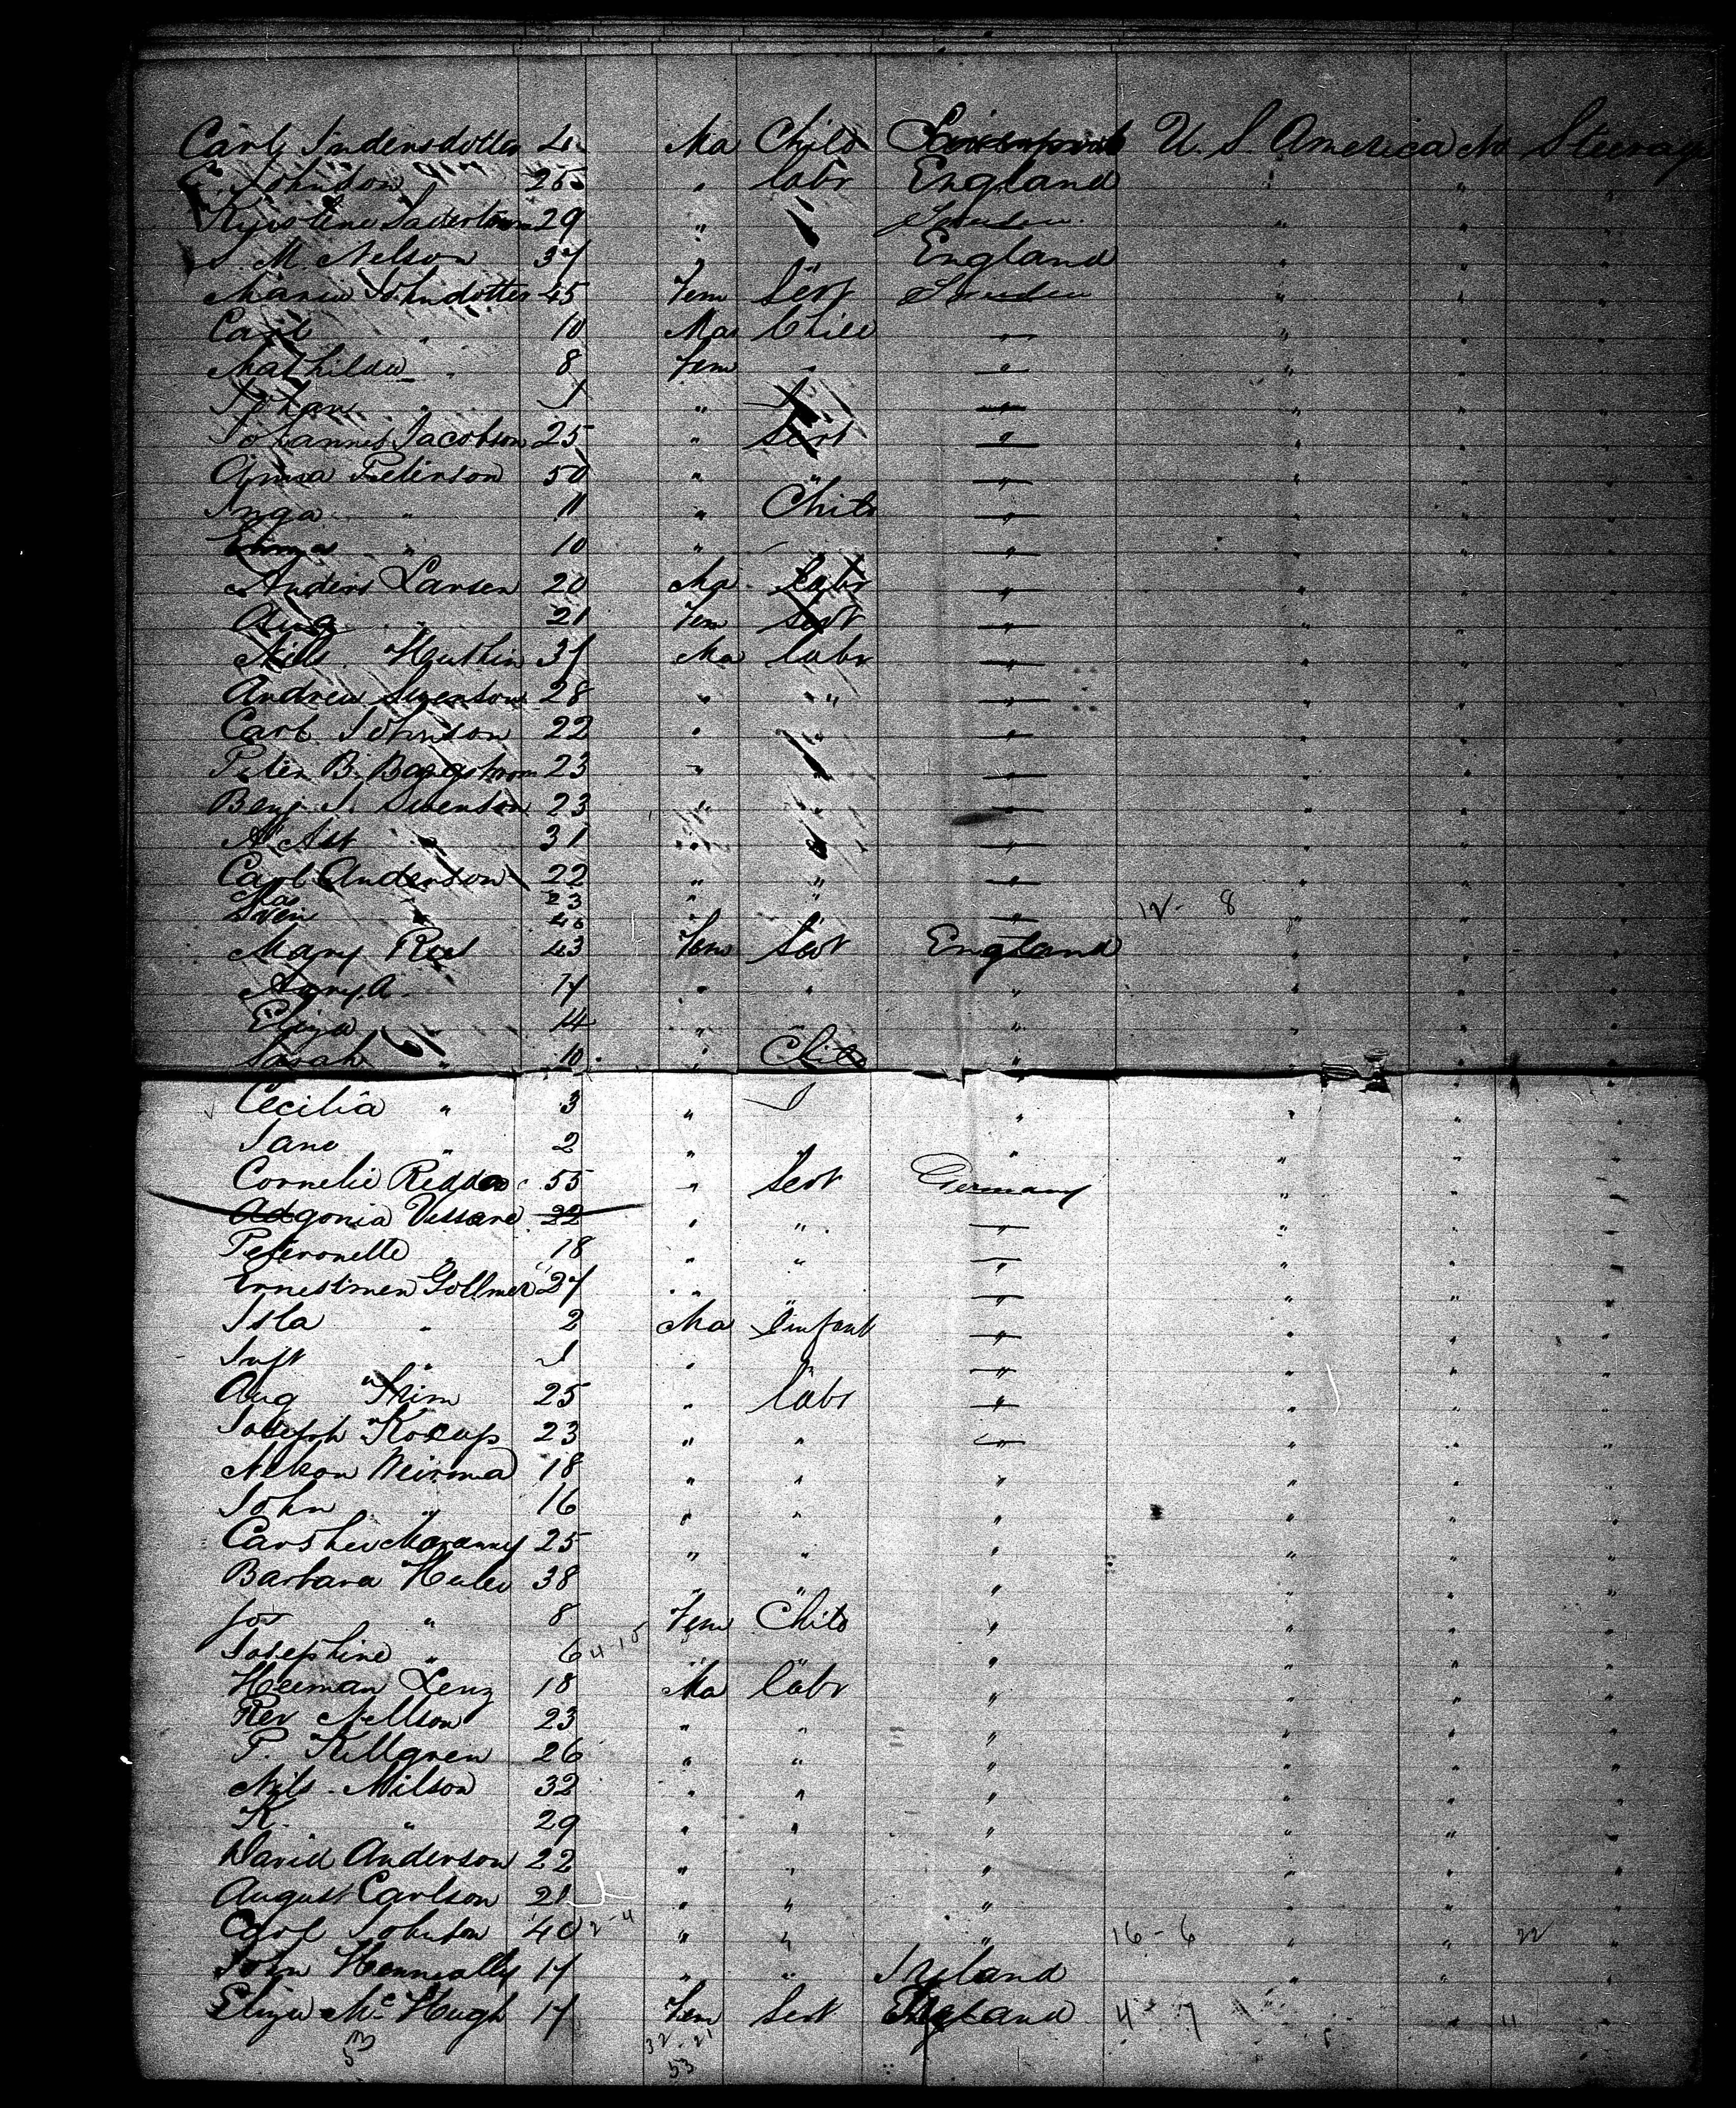 Carl Andersdotter 4 Ma Child U. S. America No Steerage
C. Johnson 25 " labr England " " "
29 " " Sweden " " "
S. M. Nelson 37 " " England " " "
Maria Johndotter 45 Fem Servt Sweden " " "
Carl " 10 Ma Child " " " "
Mathilda " 8 Fem " " " " "
Johan " 1 " " " " "
Johannes Jacobson 25 " Servt " " " "
Anna Peterson 50 " " " " " "
Inga " 11 " Child " " " "
Emma " 10 " " " " "
Anders Larsen 20 Ma labr " " " "
21 Fem Servt " " " "
Nills 31 Ma labr " " " "
Andrew Swenson 28 " " " " " "
Carl Johnson 22 " " " " " "
Peter B. Bargstrom 23 " " " " " "
Benj. S. Swenson 23 " " " " " "
A. Ast 31 " " " " " "
Carl Anderson 22 " " " " " "
23 " "
Sven " 12 - 8 " "
Mary Reed 43 Fem Servt England " " "
Mary A. 17 " " " " " "
Eliza " 14 " " " " "
Sarah " 10 " Child " " "
Cecilia " 3 " " " " "
Jane " 2 " " " " " "
Cornelie 55 " Servt Germany " " "
Adgonia Vessare 22 " " " " " "
Peteronelle " 18 " " " " " "
Ernestinen Gollmer 27 " " " " " "
Isla " 2 Ma Infant " " " "
Inft " 1 " " " " " "
Aug 25 " labr " " " "
Joseph 23 " " " " " "
Nelson Weirma 18 " " " " " "
John " 16 " " " " " "
25 " " " " " "
Barbara 38 " " " " " "
Jos " 8 Fem Child " " " "
Josephine " 6 " " " " " "
Herman Lenz 18 Ma labr " " " "
Rev Nellson 23 " " " " " "
P. Kullgren 26 " " " " " "
Nils Nilson 32 " " " " " "
K. " 29 " " " " " "
David Anderson 22 " " " " " "
August Carlson 21 " " " " " "
Carl Johnson 40 2-4 " " " 16 - 6 " " 22
John Henneally 17 " " Ireland " " "
Eliza McHugh 17 Fem Servt England 4 7 " 11 "
53 32-21
53